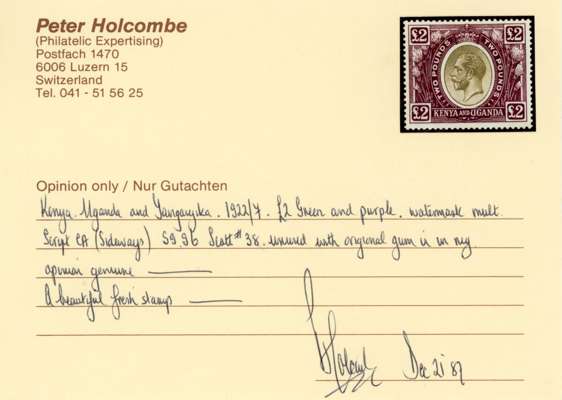 Peter Holcombe
(Philatelic Expertising)
Postfach 1470
6006 Luzern 15
Switzerland
Tel. 041 - 51 56 25
£2 £2
TWO POUNDS TWO POUNDS
£2 KENYA AND UGANDA £2
Opinion only / Nur Gutachten
Kenya. Uganda and Tanganyika. 1922/7. £2 Green and purple. watermark mult.
Script CA (Sideways) SG 96 Scott # 38. unused with original gum is in my
opinion genuine
A beautiful fresh stamp
Holcombe Dec 21 87